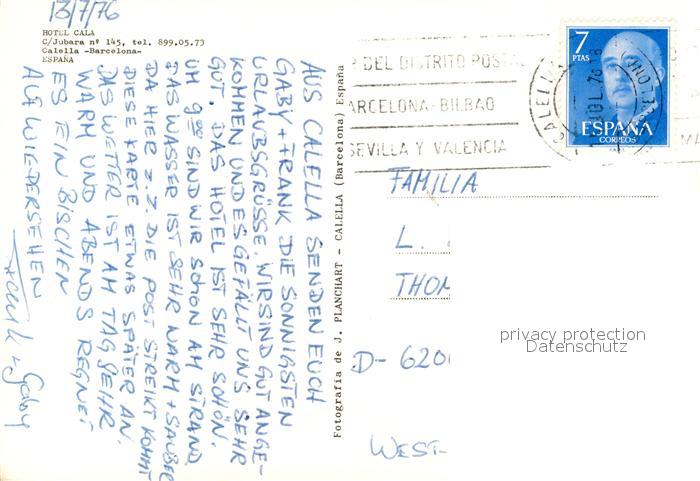 13/7/76
HOTEL CALA
C/Jubara nº 145, tel. 899.05.73
Calella -Barcelona-
ESPAÑA
AUS CALELLA SENDEN EUCH
GABY + FRANK DIE SONNIGSTEN
URLAUBSGRÜSSE. WIR SIND GUT ANGE-
KOMMEN UND ES GEFÄLLT UNS SEHR
GUT. DAS HOTEL IST SEHR SCHÖN.
UM 9 SIND WIR SCHON AM STRAND.
DAS WASSER IST SEHR WARM + SAUBER
DA HIER Z.Z. DIE POST STREIKT KOMMT
DIESE KARTE ETWAS SPÄTER AN.
DAS WETTER IST AM TAG SEHR
WARM UND ABENDS REGNET
ES EIN BISCHEN
AUF WIEDERSEHEN
Frank + Gaby
Fotografía de J. PLANCHART - CALELLA (Barcelona) España
DEL DISTRITO POSTAL
BARCELONA-BILBAO
SEVILLA Y VALENCIA
CALELLA
7
PTAS
ESPAÑA
CORREOS
FAMILIA
L.
THOM
D- 620
WEST-
privacy protection
Datenschutz